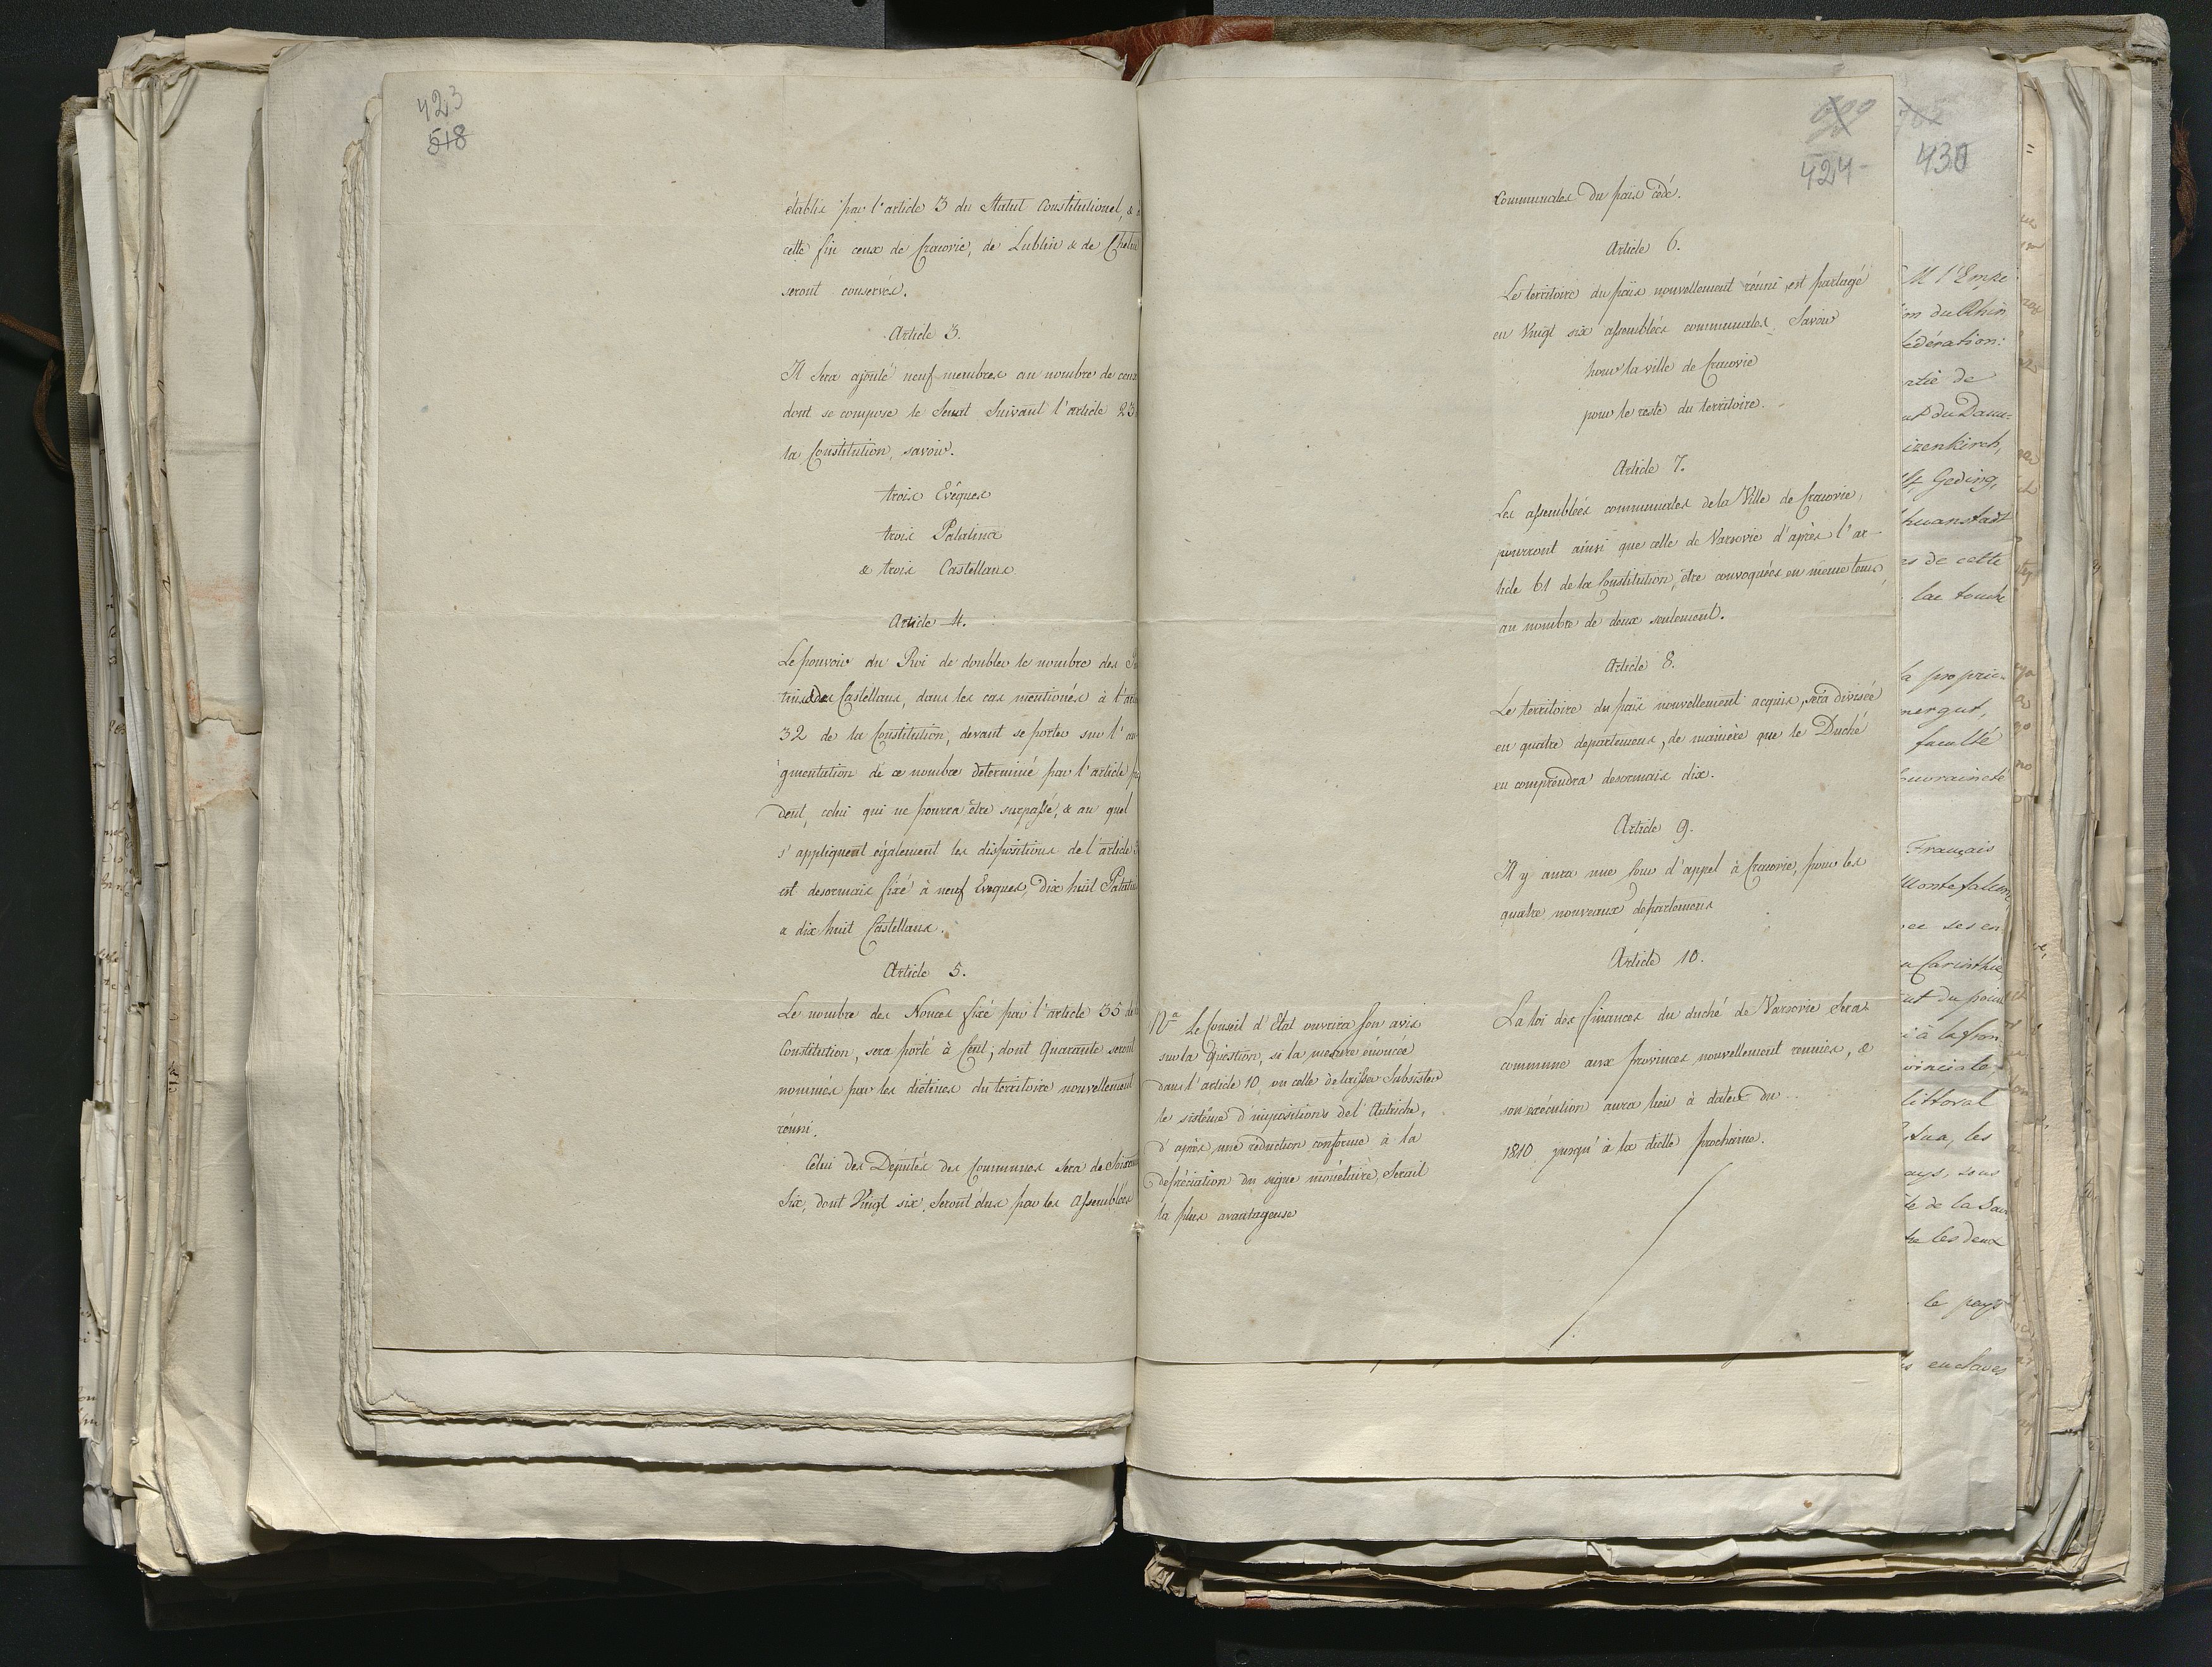 423
518
établis par l'article 3 du Statut Constitutionel, & à
cette fin ceux de Cracovie, de Lublin & de Chelm
seront conservés.
Article 3.
Il sera ajouté neuf membres au nombre de ceux
dont se compose le Senat suivant l'article 23
la Constitution, savoir.
trois Evêques
trois Palatins
& trois Castellans
Article 4.
Le pouvoir du Roi de doubler le nombre des
Castellans, dans les cas mentionés à l'
32 de la Constitution, devant se porter sur l'au
gmentation de ce nombre determiné par l'article
dent, celui qui ne pourra être surpassé, & au quel
s'appliquent également les dispositions de l'article
est desormais fixé à neuf Eveques, Dix huit Palatins
& dix huit Castellans.
Article 5.
Le nombre des Nonces fixé par l'article 35 de
Constitution, sera porté à Cent, dont Quarante seront
nommés par les diétines du territoire nouvellement
réuni.
Celui des Députés des Communes sera de Soixante
Six, dont Vingt six seront élus par les Assemblées
424
communales du païs cédé.
Article 6.
Le territoire du païs nouvellement réuni est partagé
en Vingt six assemblées communales, Savoir
pour la ville de Cracovie
pour le reste du territoire.
Article 7.
Les assemblées communales de la Ville de Cracovie,
pourront ainsi que celle de Varsovie d'après l'ar-
ticle 61 de la Constitution, être convoquées en meme tems
au nombre de deux seulement.
Article 8.
Le territoire du païs nouvellement acquis, sera divisée
en quatre departemens, de manière que le Duché
en comprendra desormais dix.
Article 9.
Il y aura une Cour d'appel à Cracovie, pour les
quatre nouveaux départemens
Article 10.
La loi des finances du duché de Varsovie sera
commune aux provinces nouvellement reunies, &
son exécution aura lieu à dater du ..
1810 jusqu'à la diette prochaine.
Na Le Conseil d'Etat ouvrira son avis
sur la Question, si la mesure énoncée
dans l'article 10 ou celle de laisser subsister
le sistême d'impositions de l'Autriche,
d'après une réduction conforme à la
dépréciation du signe monétaire, serait
la plus avantageuse
430
M l'Empe
on du Rhin
édération:
rtie de
ut du Danu-
izenkirch,
Geding,
hwanstadt
es de cette
lac touche
la proprie-
nergut,
faculté
ouveraineté
Français
Montefalcon,
Carinthie
à la fron
littoral
les
ays, sous
te de la Save
tre les deux
le pays
enclaves